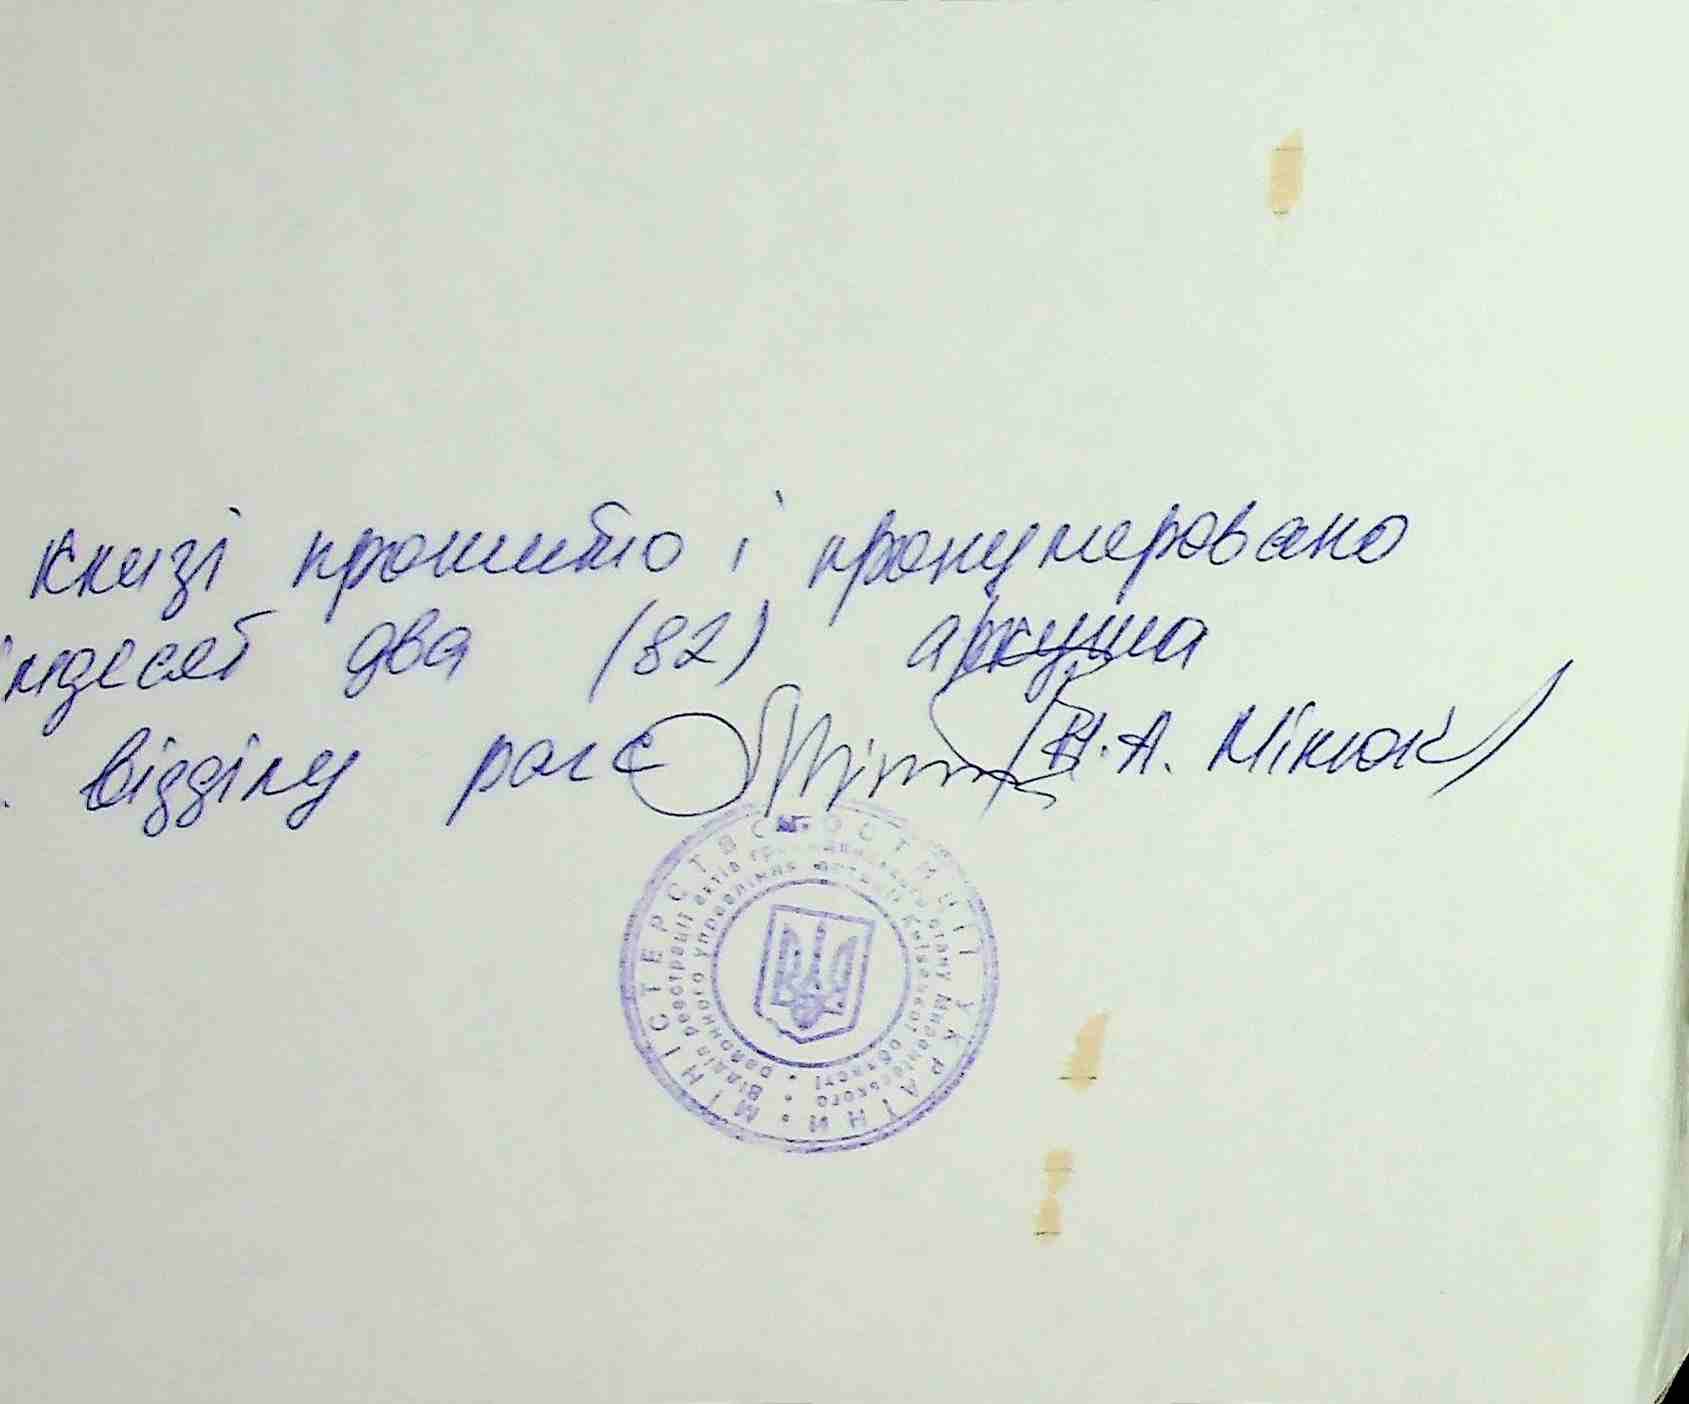 книзі прошито і пронумеровано
імдесят два (82) аркуша
. відділу рагс Н.А. Мінюк/
МІНІСТЕРСТВО ЮСТИЦІЇ УКРАЇНИ
Відділ реєстрації актів громадянського стану Миронівського
районного управління юстиції Київської області